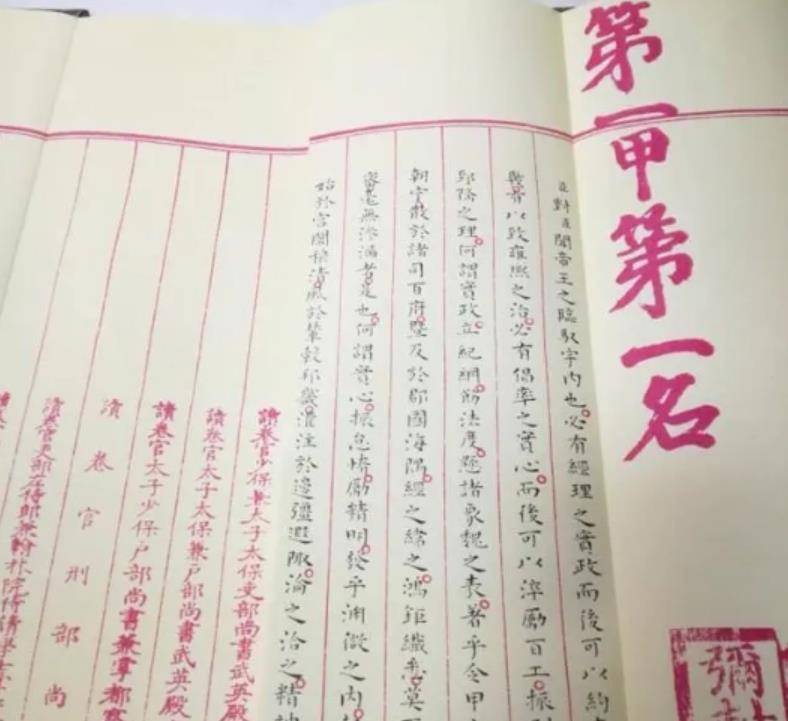 第一甲第一名
彌
臣對臣聞帝王之臨馭宇內也必有經理之實政而後可以約
以致雍熙之治必有倡率之實心而後可以淬勵百工振
郅隆之理何謂實政立紀綱飭法度懸諸象魏之表著乎令甲
朝宁散於諸司百府暨及於郡國海隅經之緯之鴻鉅纖悉莫
毫無滲漏者是也何謂實心振怠惰勵精明發乎淵微之內
始於宮闈穆清風於輦轂邦畿灌注於邊疆遐陬淪之洽之精神
讀卷官少保兼太子太保吏部尚書武英殿
讀卷官太子太保兼戶部尚書武英殿
讀卷官太子少保戶部尚書兼掌都
讀卷官刑部尚
讀卷官吏部左侍郎兼翰林院侍讀學